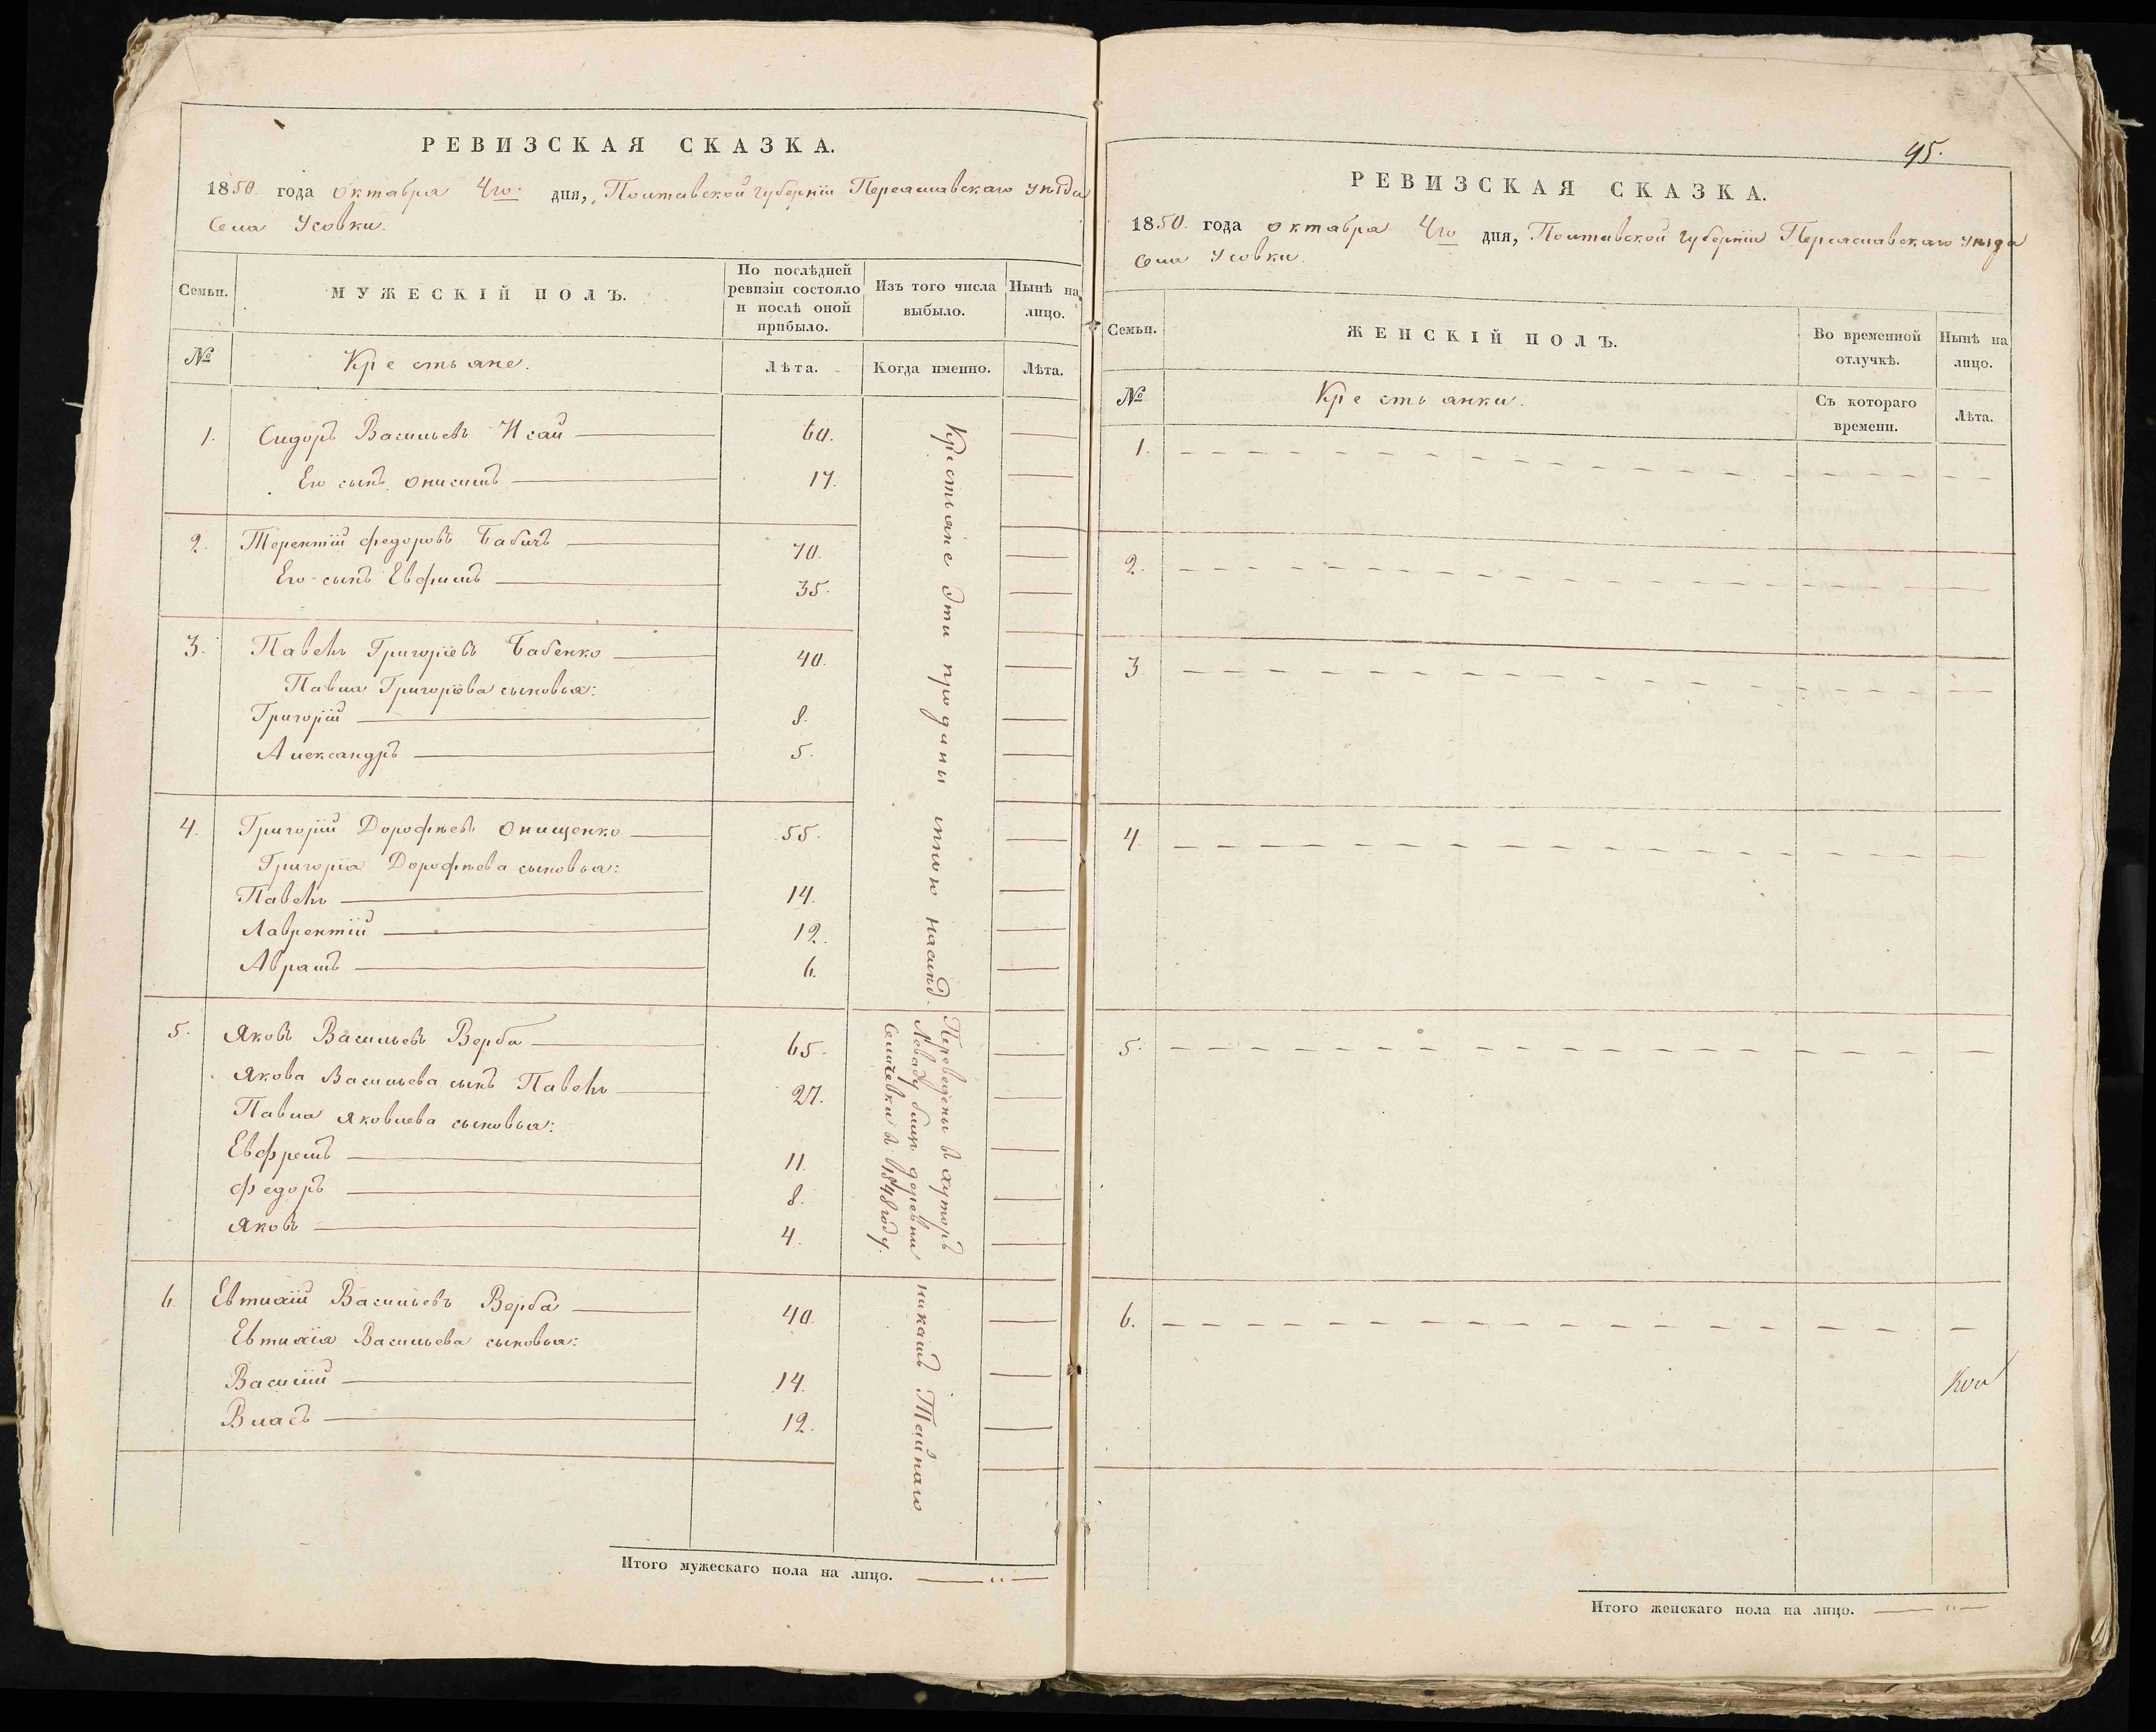 РЕВИЗСКАЯ СКАЗКА.
1850. года октабра 4го. дня, Полтавской губернїи Переяславскаго уѣзда
Села Усовки.
Семьи.
МУЖЕСКІЙ ПОЛЪ.
По послѣдней ревизіи состояло и послѣ оной прибыло.
Изъ того числа выбыло.
Нынѣ на лицо.
№
Крестьяне.
Лѣта.
Когда именно.
Лѣта.
1. Сидоръ Васильевъ Исай 60.
Его сынъ Онисимъ 17.
2. Терентїй Федоровъ Бабичъ 70.
Его сынъ Евфимъ 35.
3. Павелъ Григорїевъ Бабенко 40.
Павла Григорїева сыновья:
Григорїй 8.
Александръ 5.
4. Григорїй Дорофѣевъ Онищенко 55.
Григорїя Дорофѣева сыновья:
Павелъ 14.
Лаврентїй 12.
Аврамъ 6.
5. Яковъ Васильевъ Верба 65.
Якова Васильева сынъ Павелъ 27.
Павла Яковлева сыновья:
Евфремъ 11.
Федоръ 8.
Яковъ 4.
6. Евтихїй Васильевъ Верба 40.
Евтихїя Васильева сыновья:
Василїй 14.
Власъ 12.
Крестьяне эти проданы мною наслѣд-
никамъ Тайнаго
Переведены в хуторъ
Леваду близъ деревни
Селичевки в 1848 году.
Итого мужескаго пола на лицо. — „ —
95.
РЕВИЗСКАЯ СКАЗКА.
1850. года октабра 4го дня, Полтавской губернїи Переяславскаго уѣзда
Села Усовки.
Семьи.
ЖЕНСКІЙ ПОЛЪ.
Во временной отлучкѣ.
Нынѣ на лицо.
№
Крестьянки.
Съ котораго времени.
Лѣта.
1.
2.
3.
4.
5.
6.
Итого женскаго пола на лицо. — „ —